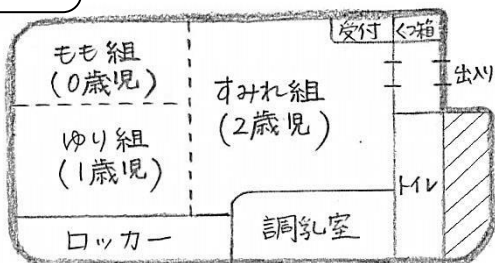 もも組
(0歳児)
ゆり組
(1歳児)
すみれ組
(2歳児)
受付
くつ箱
出入り
トイレ
ロッカー
調乳室